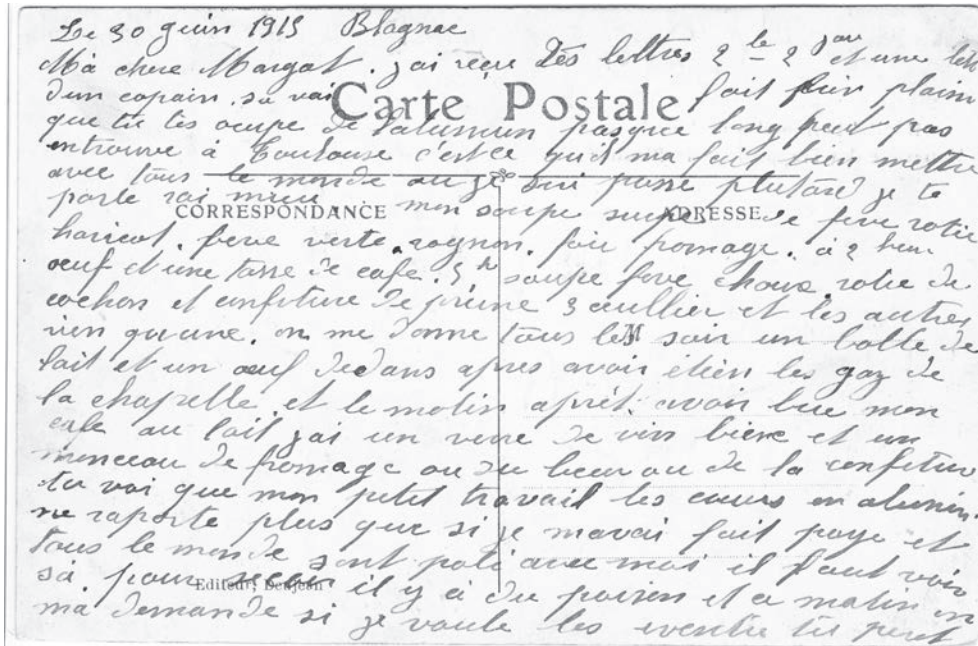 Le 30 Juin 1915 Blagnac
Ma chere Margot. jai reçu tes lettres 2 le 2 jour et une
dun copain. sa vai fait bien plaisir
Carte Postale
que tu tes ocupe de lalumun pasque long peut pas
entrouve à Toulouse c'est ce qu'il ma fait bien mettre
avec tous le monde ou je sui passe plutard je te
parle rai mieu. mon soupe soupe de feve rotie
CORRESPONDANCE
ADRESSE
haricot. feve verte. rognon. foie fromage. à 2 heur
œuf et une tasse de cafe. 5 h soupe feve choux rotie de
cochon et confiture de prune 3 cullier et les autres
rien quune. on me donne tous les soir un bolle de
M
lait et un œuf dedans apres avoir étein les gaz de
la chapelle. et le matin aprèt avoir bue mon
cafe au lait jai un verre de vin biere et un
monceau de fromage ou du beur ou de la confiture
tu voi que mon petit travail les cœurs en alumin.
me raporte plus que si je mavai fait paye et
tous le monde sont poli avec moi il faut voir
sà pour il y à du poison et ce matin on
Editeur, Denjean
mà demande si je voule les eventre tu peut